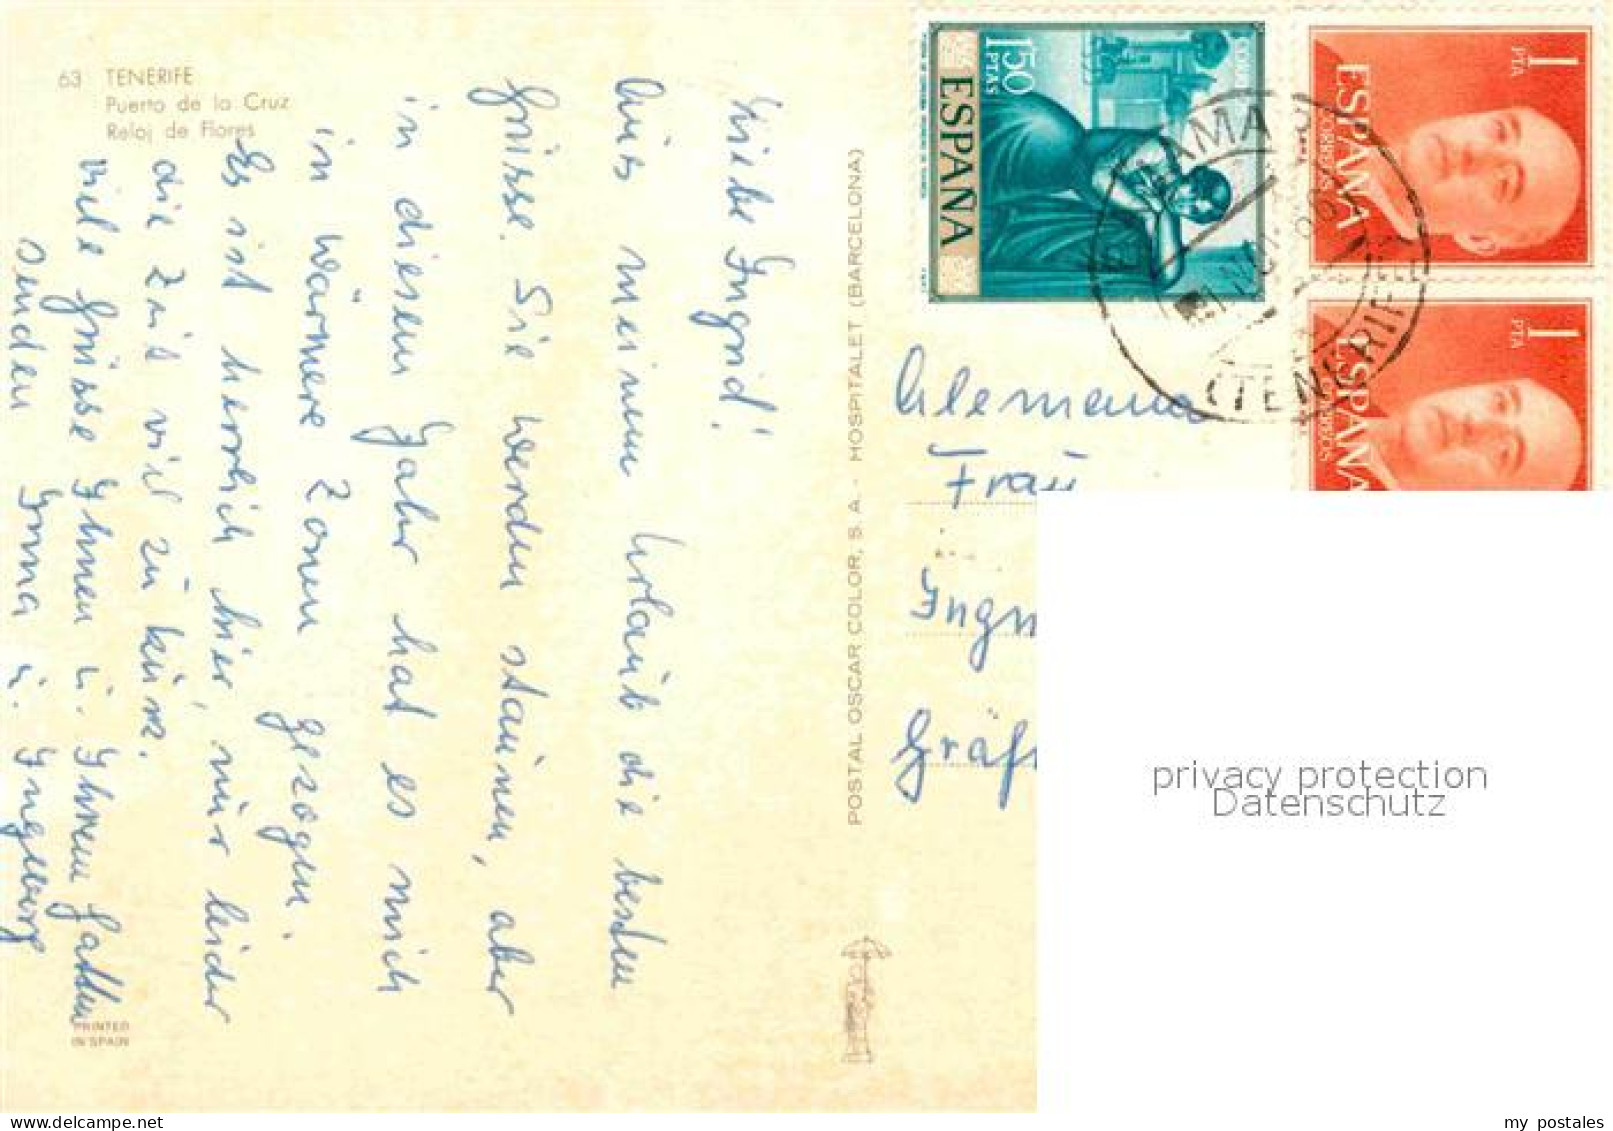 63 TENERIFE
Puerto de la Cruz
Reloj de Flores
Liebe Ingrid!
Aus meinem Urlaub die besten
Grüsse. Sie werden staunen, aber
in diesem Jahr hat es mich
in wärmere Zonen gezogen.
Es ist herrlich hier, nur leider
die Zeit viel zu kurz.
Viele Grüsse Ihnen u. Ihrem Gatten
senden Imma u. Ingeborg
PRINTED
IN SPAIN
POSTAL OSCAR COLOR, S. A. - HOSPITALET (BARCELONA)
1'50 PTAS
CORREOS
ESPAÑA
1 PTA
CORREOS
ESPAÑA
1 PTA
CORREOS
ESPAÑA
(TENERIFE)
Alemania
Frau
Ingr
Gräf
privacy protection
Datenschutz
delcampe.net
my_postales